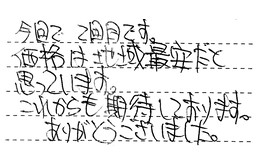 今回で2回目です。
価格は地域最安だと
思っています。
これからも期待しております。
ありがとうございました。